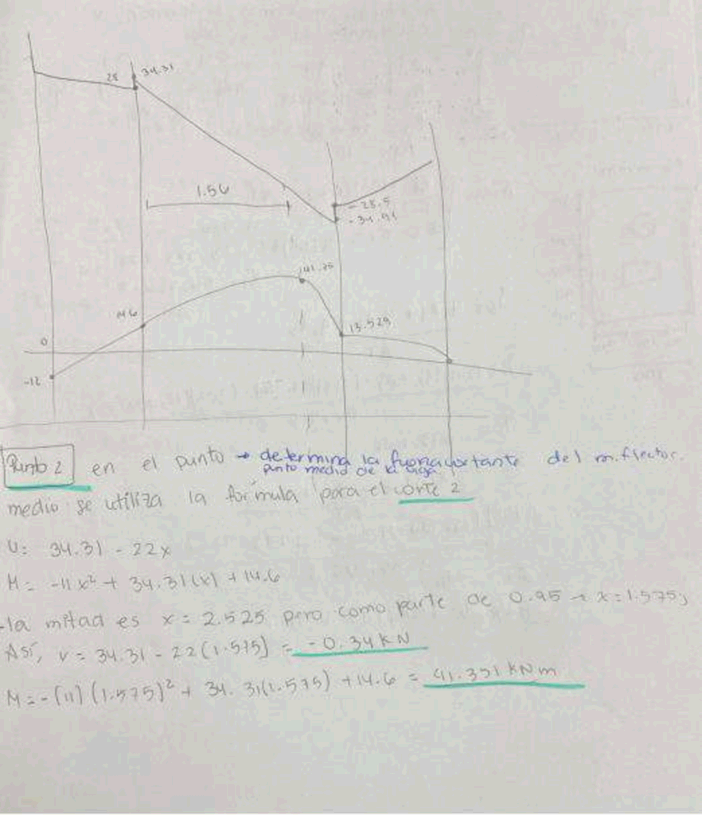 28 34.31
1.56
-28.5
-34.91
41.35
14.6
13.529
0
-12
Punto 2 en el punto → determina la fuerza cortante del m. flector.
punto medio de la viga
medio se utiliza la fórmula para el corte 2
V: 34.31 - 22x
M = -11x² + 34.31(x) + 14.6
la mitad es x = 2.525 pero como parte de 0.95 → x = 1.575,
Así, v = 34.31 - 22(1.575) = -0.34 KN
M = -(11)(1.575)² + 34.31(1.575) + 14.6 = 41.351 KNm